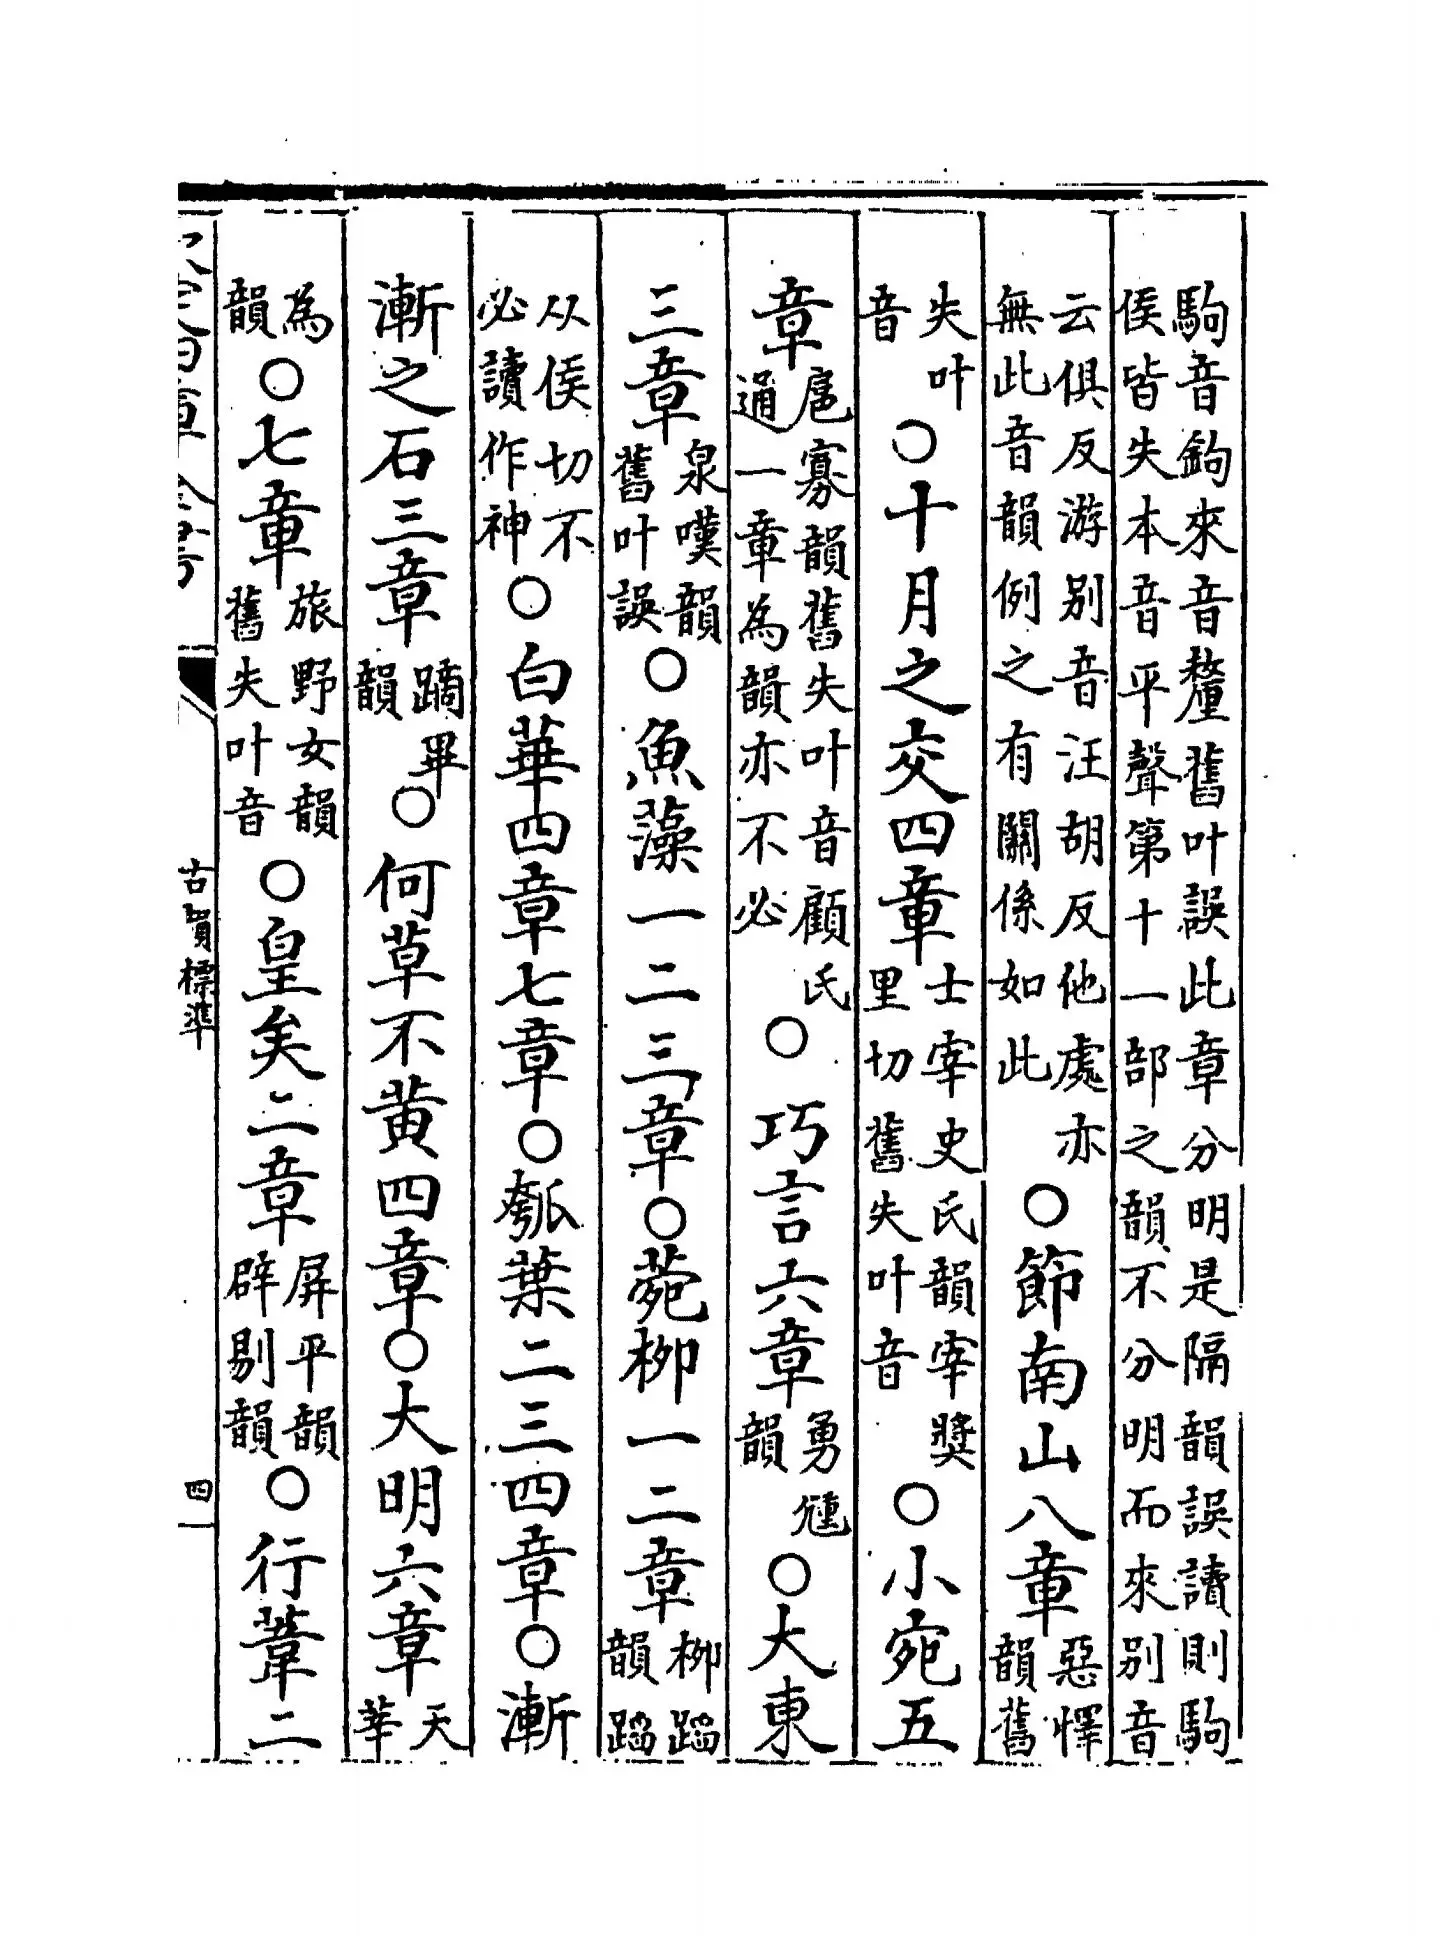 駒音鉤來音釐舊叶誤此章分明是隔韻誤讀則駒
侯皆失本音平聲第十一部之韻不分明而來別音
云俱反游別音汪胡反他處亦無此音韻例之有關係如此○節南山八章惡懌韻舊
失叶音○十月之交四章士宰史氏韻宰獎里切舊失叶音○小宛五
章扈寡韻舊失叶音顧氏通一章為韻亦不必○巧言六章勇尰韻○大東
三章泉嘆韻舊叶誤○魚藻一二三章○菀柳一二章柳蹈韻蹈
从侯切不必讀作神○白華四章七章○瓠葉二三四章○漸
漸之石三章蹢畢韻○何草不黄四章○大明六章天莘
為韻○七章旅野女韻舊失叶音○皇矣二章屏平韻辟剔韻○行葦二
欽定四庫全書
古韻標準
四